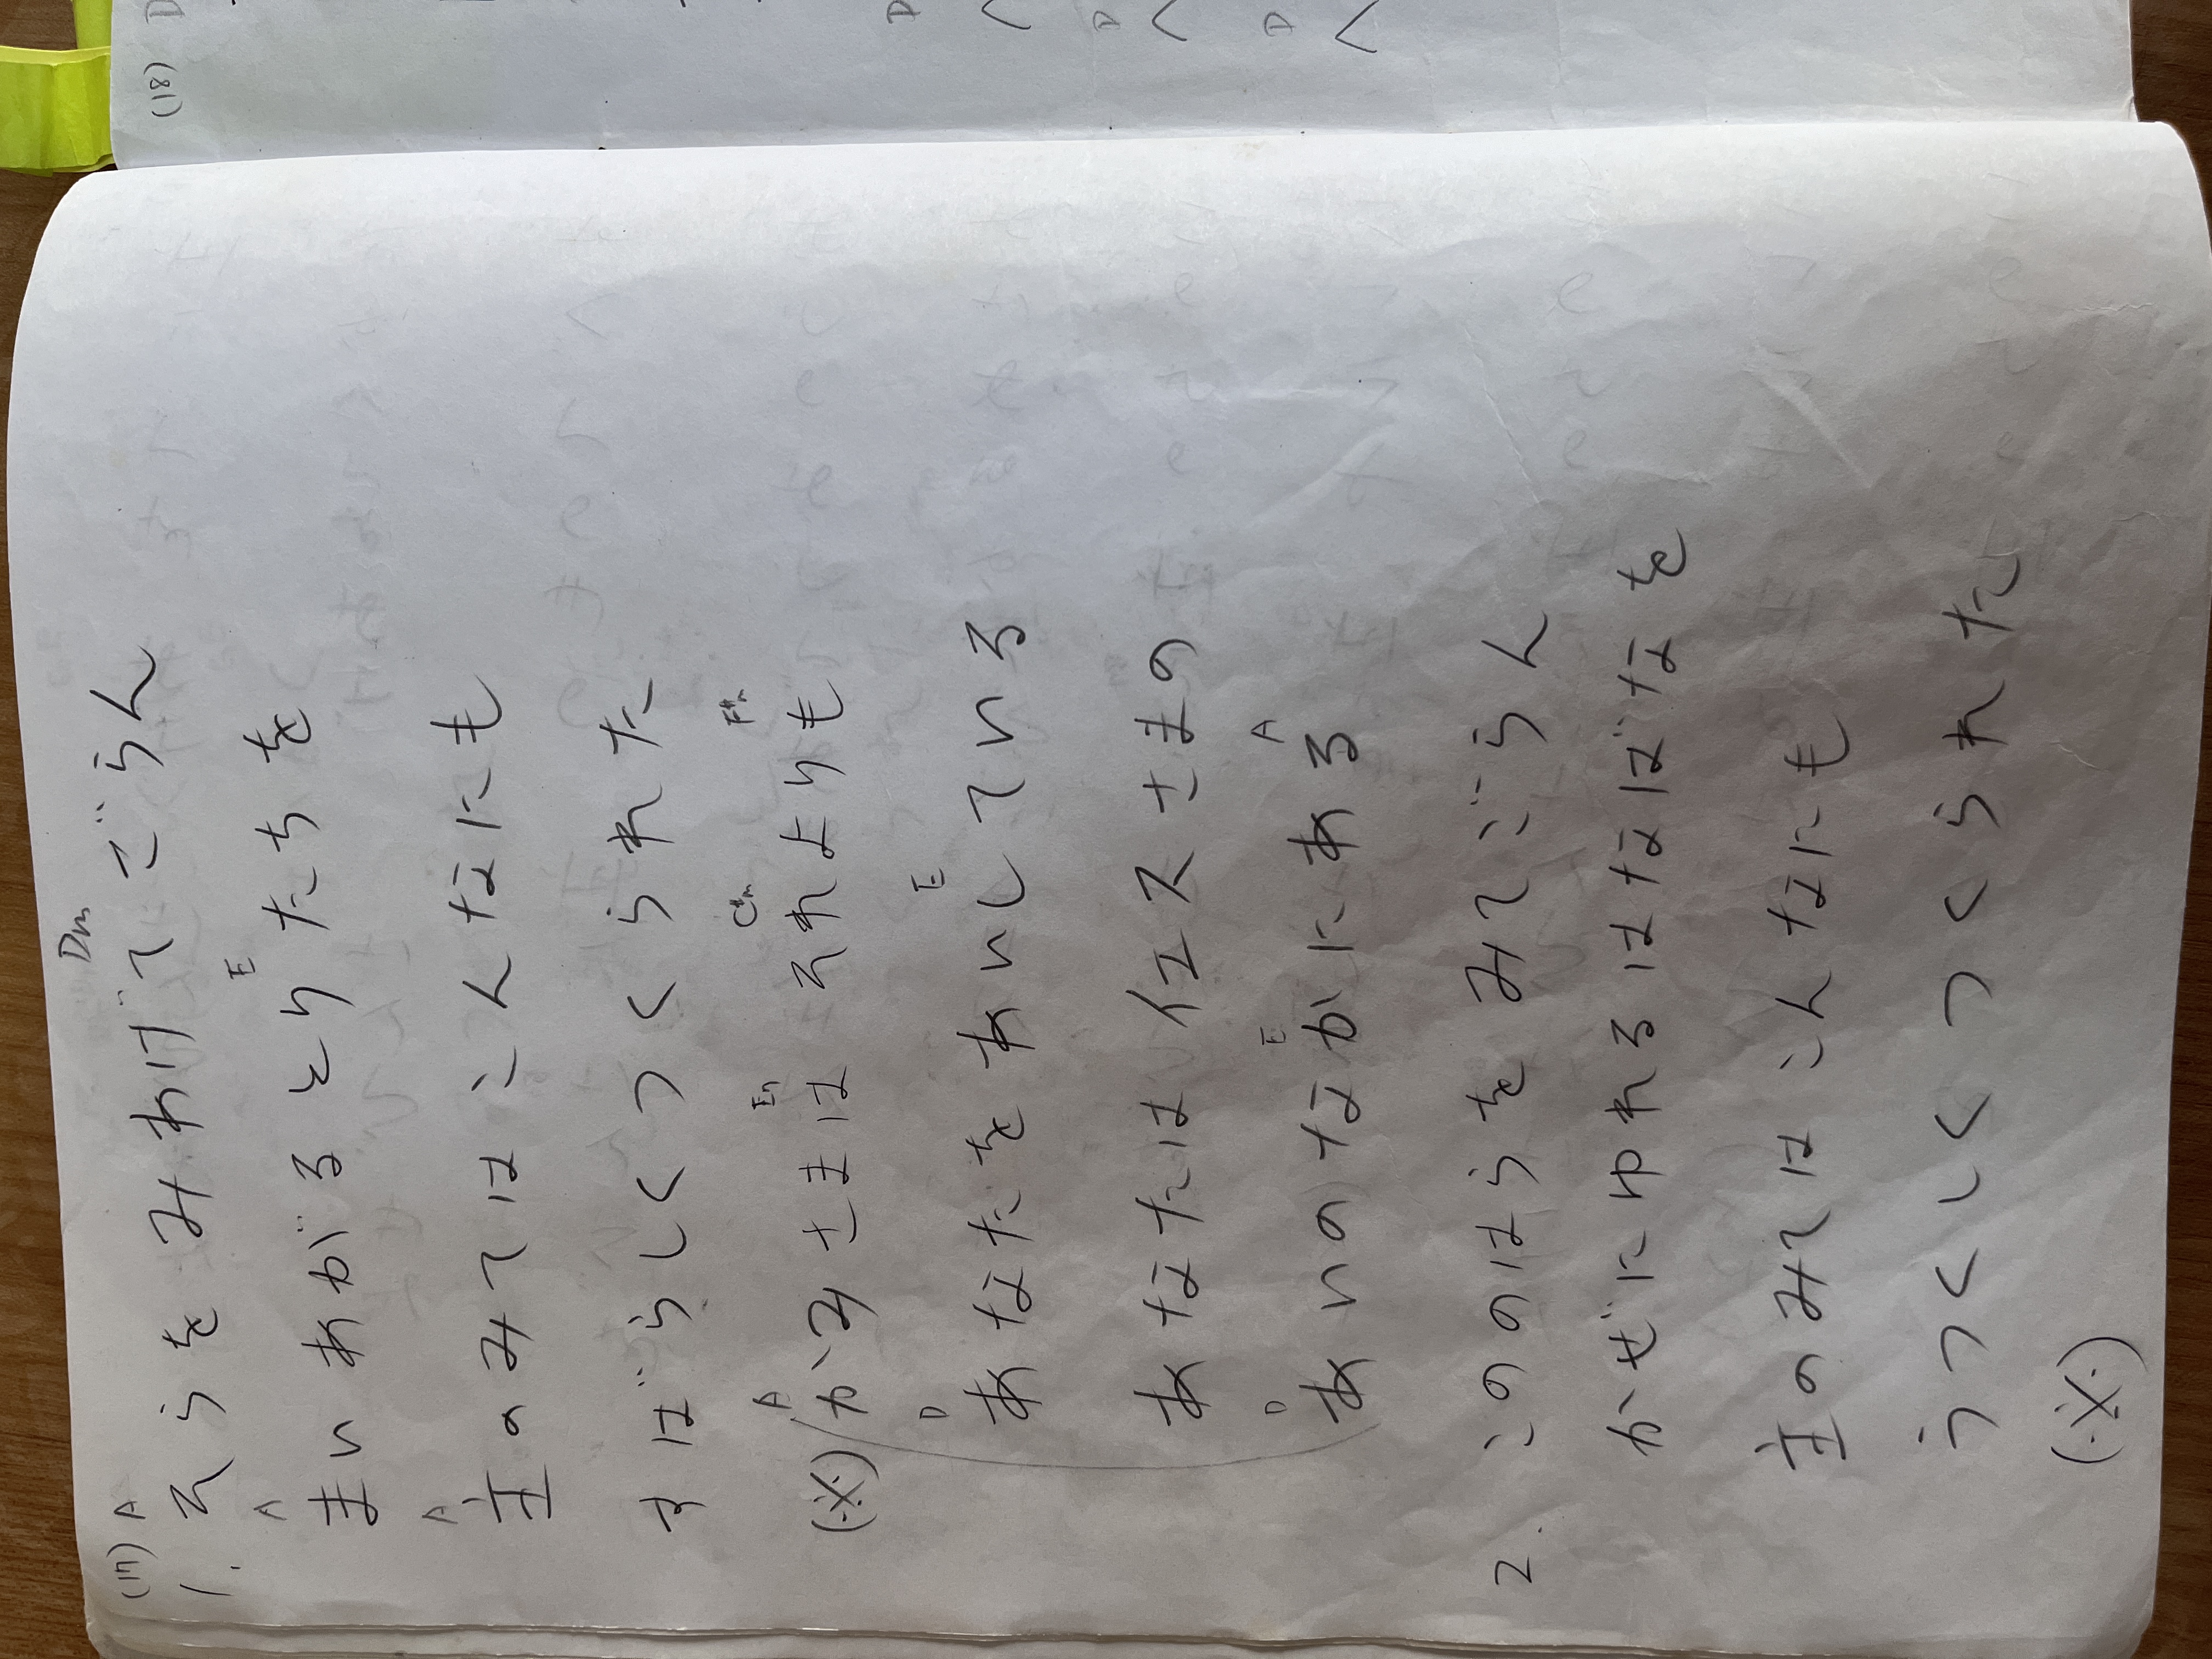 (17) A Dm
1. そらを みあげてごらん
A E
まいあがるとりたちを
A
主のみてはこんなにも
すばらしくつくられた
A E7 C#m F#m
(※) かみさまは それよりも
D E
あなたをあいしている
あなたはイエスさまの
D E A
あいのなかにある
2. このはらをみてごらん
かぜにゆれるはなばなを
主のみてはこんなにも
うつくしくつくられた
(※)
(18) D
D
く
D
く
D
く